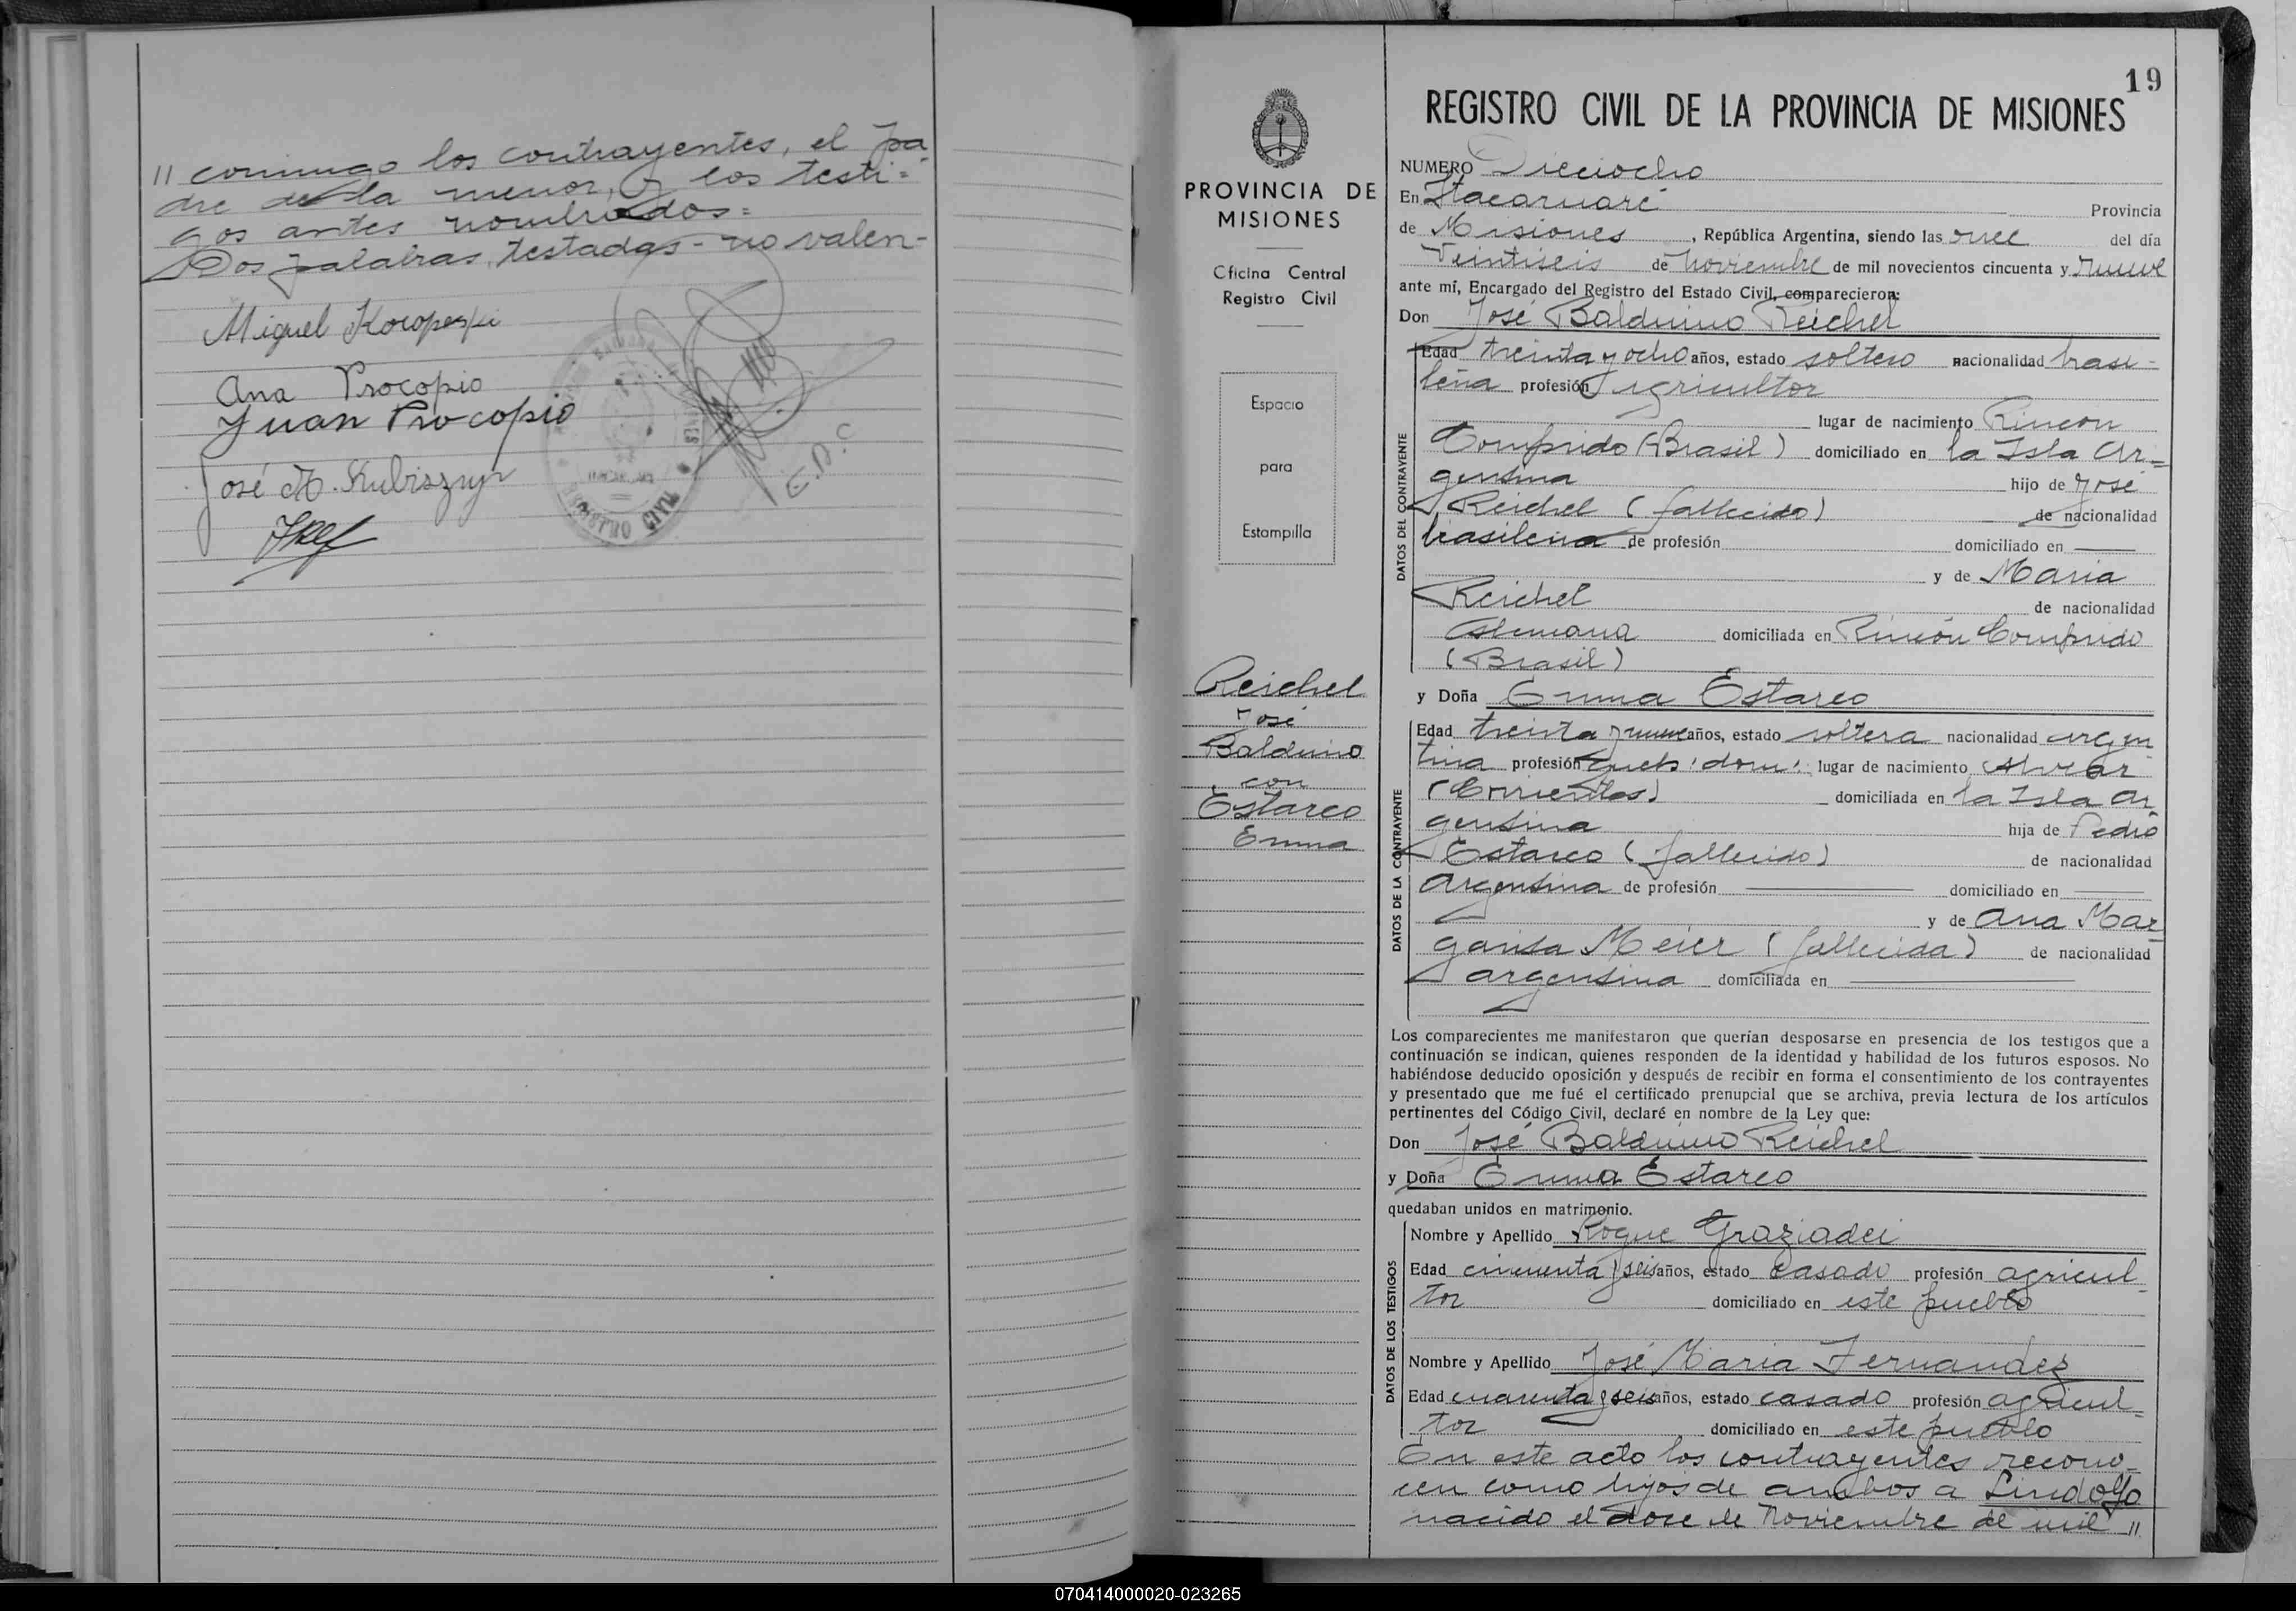 // conmigo los contrayentes, el pa-
dre de la menor, y los testi=
gos antes nombrados=
Dos palabras testadas - no valen-
Miguel
Ana Procopio
Juan Procopio
José M. Kubiszyn
E.D.C
REGISTRO CIVIL
PROVINCIA DE
MISIONES
Oficina Central
Registro Civil
Espacio
para
Estampilla
Reichel
José
Balduino
con
Estareo
Emma
19
REGISTRO CIVIL DE LA PROVINCIA DE MISIONES
NUMERO Dieciocho
En Itacaruaré Provincia
de Misiones, República Argentina, siendo las once del día
Veintiseis de Noviembre de mil novecientos cincuenta y nueve
ante mí, Encargado del Registro del Estado Civil, comparecieron:
Don José Balduino Reichel
DATOS DEL CONTRAYENTE
Edad treinta y ocho años, estado soltero nacionalidad brasi-
leña profesión Agricultor
lugar de nacimiento Rincon
Comprido (Brasil) domiciliado en la Isla Ar=
gentina hijo de José
Reichel (fallecido) de nacionalidad
brasileña de profesión domiciliado en
y de Maria
Reichel de nacionalidad
Alemana domiciliada en Rincón Comprido
(Brasil)
y Doña Emma Estareo
DATOS DE LA CONTRAYENTE
Edad treinta y nueve años, estado soltera nacionalidad argen
tina profesión queh: dom: lugar de nacimiento Alvear
(Corrientes) domiciliada en la Isla Ar
gentina hija de Pedro
Estareo (fallecido) de nacionalidad
Argentina de profesión domiciliado en
y de Ana Mar
garita Meier (fallecida) de nacionalidad
argentina domiciliada en
Los comparecientes me manifestaron que querían desposarse en presencia de los testigos que a
continuación se indican, quienes responden de la identidad y habilidad de los futuros esposos. No
habiéndose deducido oposición y después de recibir en forma el consentimiento de los contrayentes
y presentado que me fué el certificado prenupcial que se archiva, previa lectura de los artículos
pertinentes del Código Civil, declaré en nombre de la Ley que:
Don José Balduino Reichel
y Doña Emma Estareo
quedaban unidos en matrimonio.
DATOS DE LOS TESTIGOS
Nombre y Apellido Roque Graziadei
Edad cincuenta y seis años, estado casado profesión agricul-
tor domiciliado en este pueblo
Nombre y Apellido José Maria Fernandez
Edad cuarenta y seis años, estado casado profesión agricul-
tor domiciliado en este pueblo
En este acto los contrayentes recono-
cen como hijos de ambos a Lindolfo
nacido el doce de Noviembre de mil //
070414000020-023265